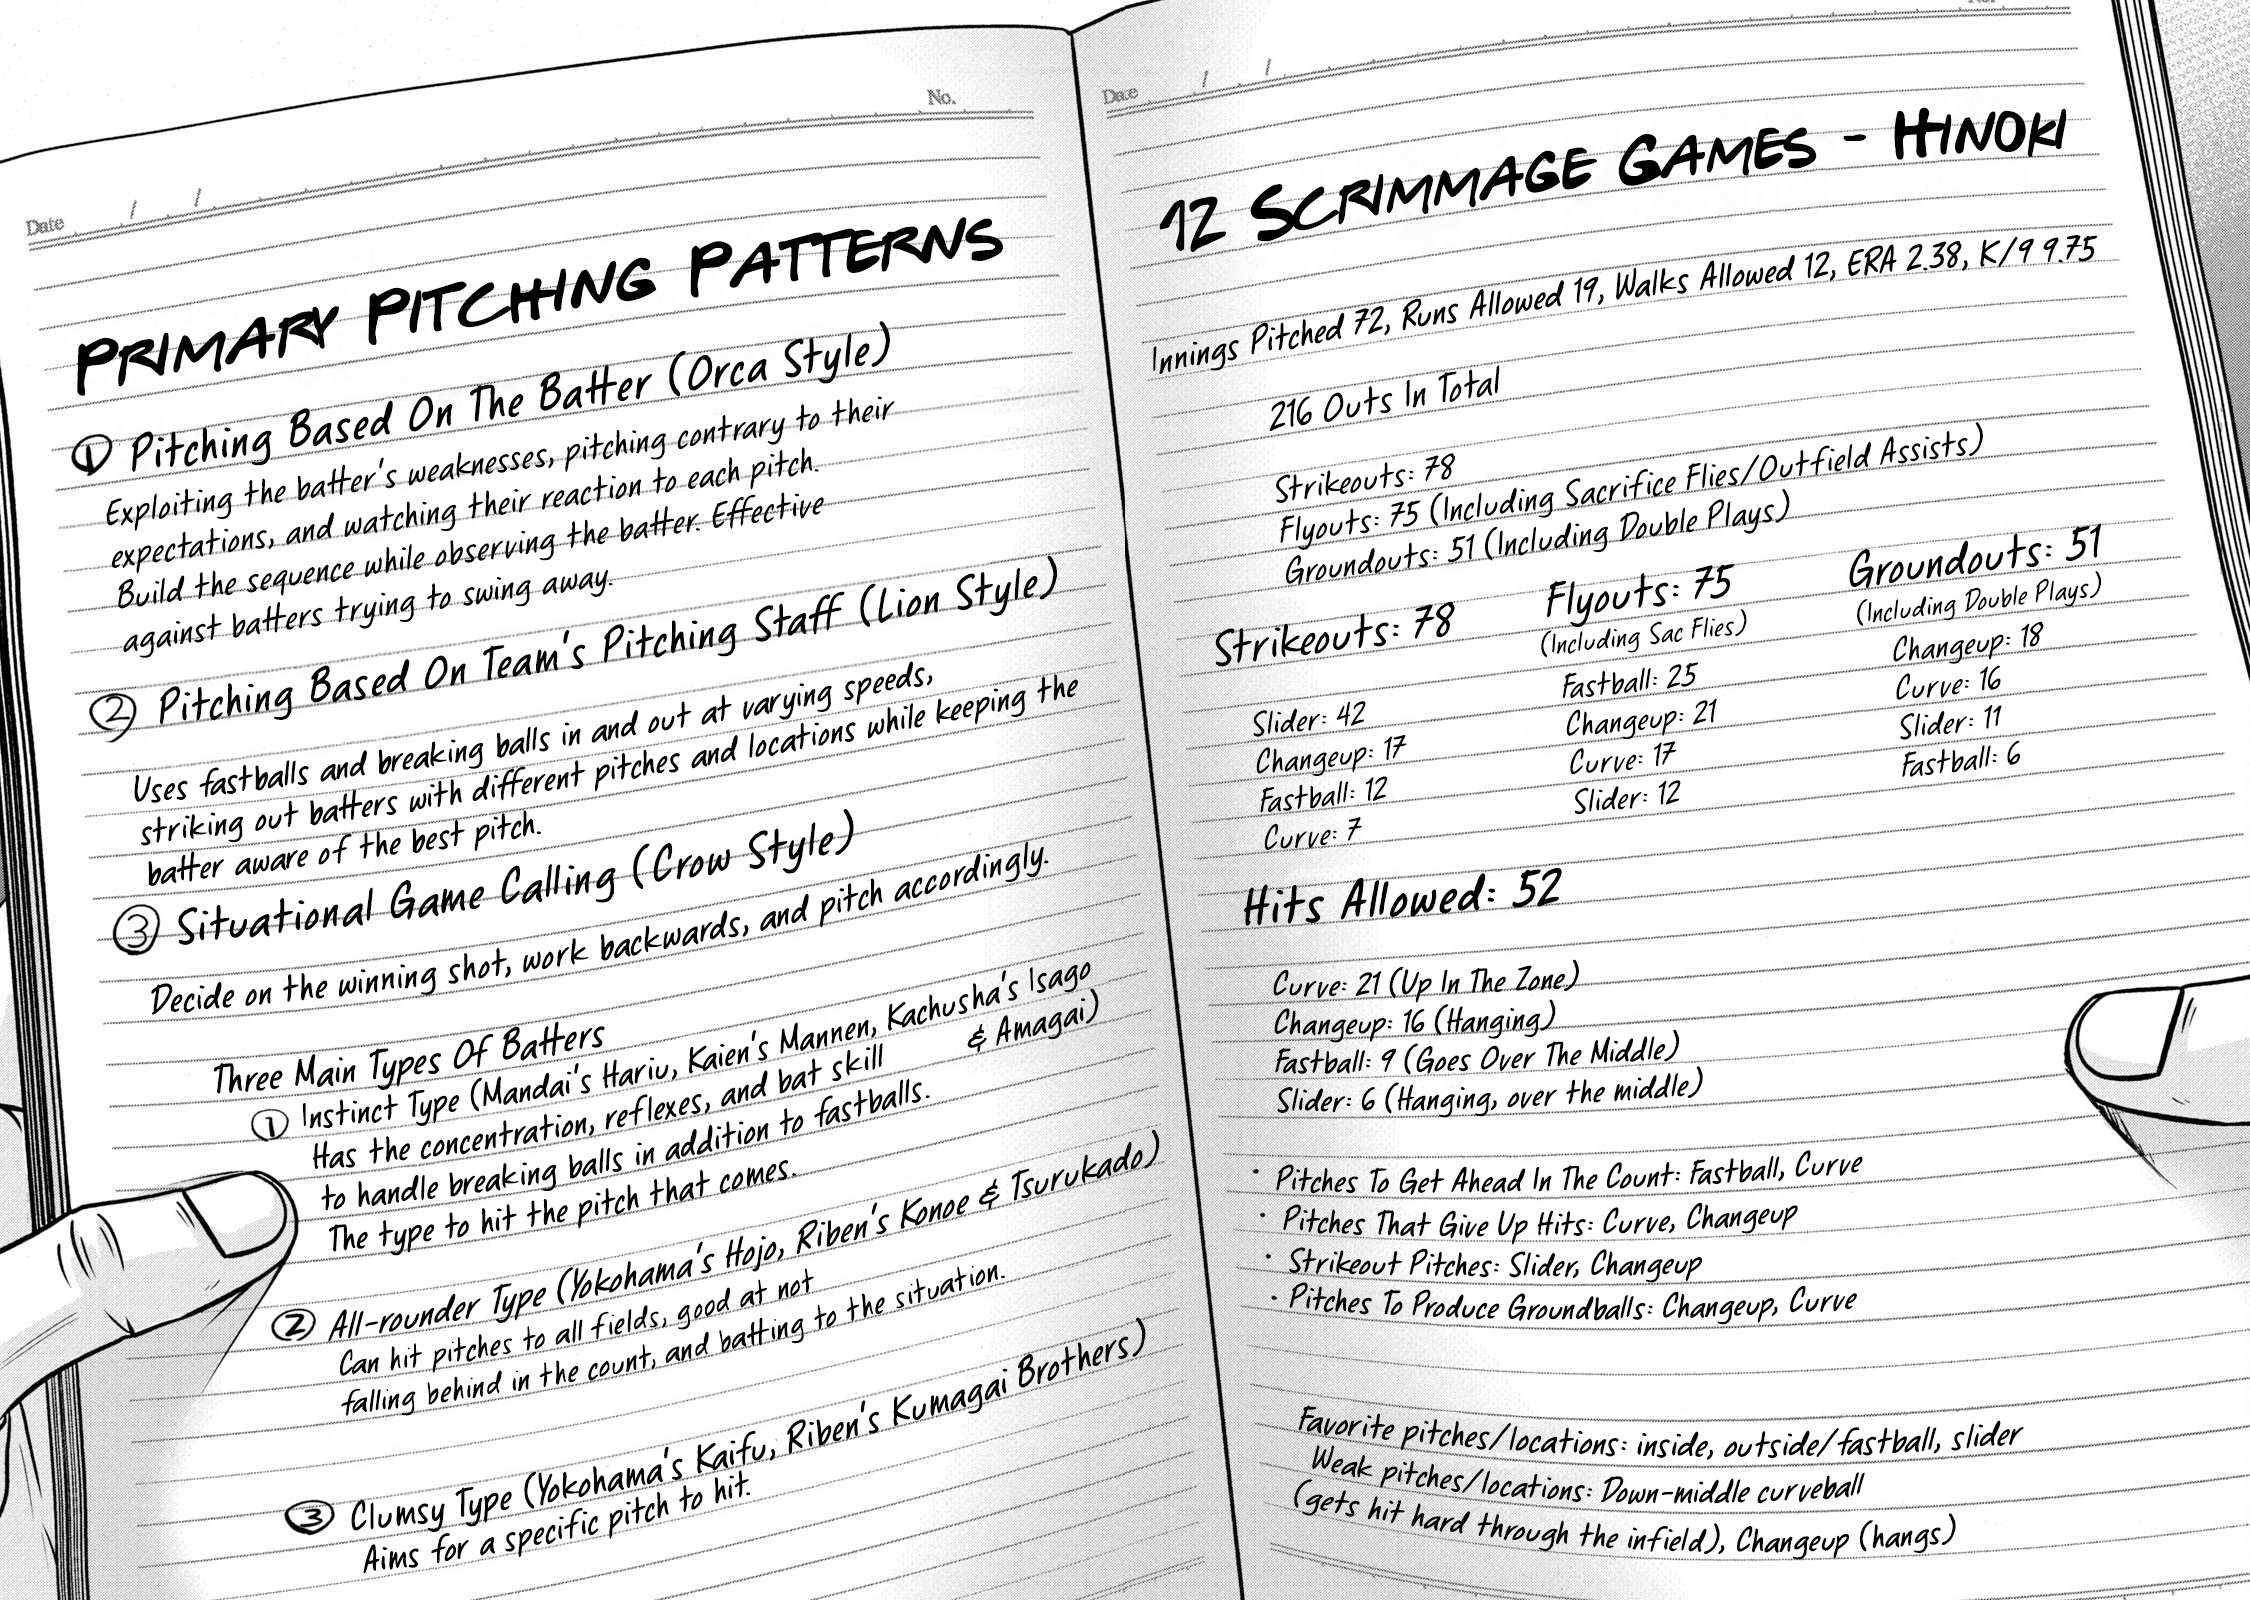 Date / /
No.
PRIMARY PITCHING PATTERNS
① Pitching Based On The Batter (Orca Style)
Exploiting the batter's weaknesses, pitching contrary to their
expectations, and watching their reaction to each pitch.
Build the sequence while observing the batter. Effective
against batters trying to swing away.
② Pitching Based On Team's Pitching Staff (Lion Style)
Uses fastballs and breaking balls in and out at varying speeds,
striking out batters with different pitches and locations while keeping the
batter aware of the best pitch.
③ Situational Game Calling (Crow Style)
Decide on the winning shot, work backwards, and pitch accordingly.
Three Main Types Of Batters
① Instinct Type (Mandai's Hariu, Kaien's Mannen, Kachusha's Isago
& Amagai)
Has the concentration, reflexes, and bat skill
to handle breaking balls in addition to fastballs.
The type to hit the pitch that comes.
② All-rounder Type (Yokohama's Hojo, Riben's Konoe & Tsurukado)
Can hit pitches to all fields, good at not
falling behind in the count, and batting to the situation.
③ Clumsy Type (Yokohama's Kaifu, Riben's Kumagai Brothers)
Aims for a specific pitch to hit.
Date / /
No.
12 SCRIMMAGE GAMES - HINOKI
Innings Pitched 72, Runs Allowed 19, Walks Allowed 12, ERA 2.38, K/9 9.75
216 Outs In Total
Strikeouts: 78
Flyouts: 75 (Including Sacrifice Flies/Outfield Assists)
Groundouts: 51 (Including Double Plays)
Strikeouts: 78
Slider: 42
Changeup: 17
Fastball: 12
Curve: 7
Flyouts: 75
(Including Sac Flies)
Fastball: 25
Changeup: 21
Curve: 17
Slider: 12
Groundouts: 51
(Including Double Plays)
Changeup: 18
Curve: 16
Slider: 11
Fastball: 6
Hits Allowed: 52
Curve: 21 (Up In The Zone)
Changeup: 16 (Hanging)
Fastball: 9 (Goes Over The Middle)
Slider: 6 (Hanging, over the middle)
· Pitches To Get Ahead In The Count: Fastball, Curve
· Pitches That Give Up Hits: Curve, Changeup
· Strikeout Pitches: Slider, Changeup
· Pitches To Produce Groundballs: Changeup, Curve
Favorite pitches/locations: inside, outside/fastball, slider
Weak pitches/locations: Down-middle curveball
(gets hit hard through the infield), Changeup (hangs)